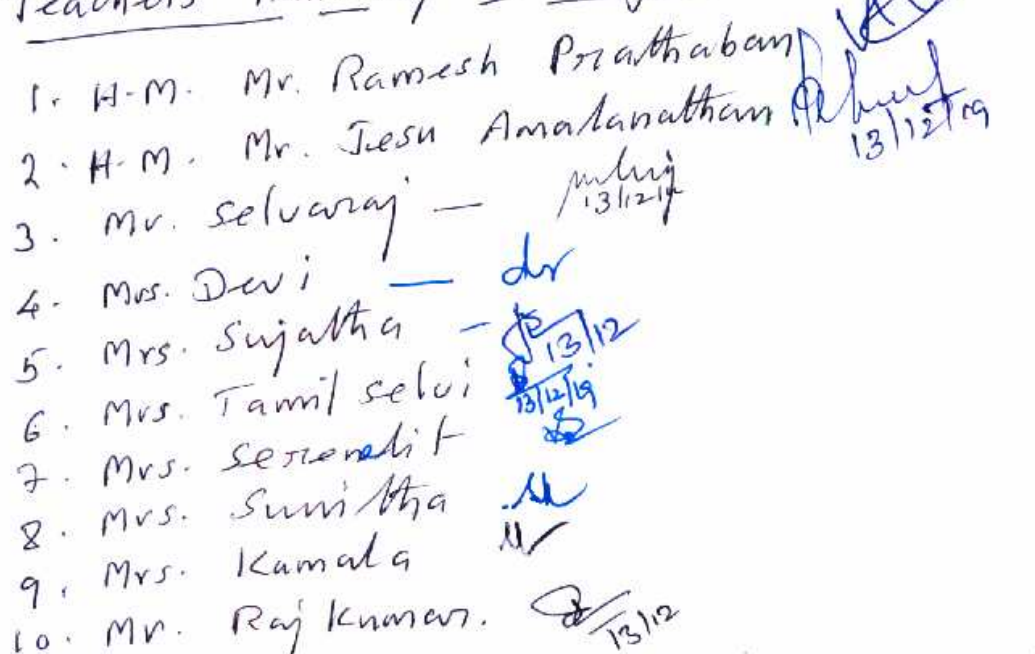 Teachers
1. H.M. Mr. Ramesh Prathaban
2. H.M. Mr. Jesu Amalanathan 13/12/19
3. Mr. Selvaraj — 13/12/19
4. Mrs. Devi —
5. Mrs. Sujatha - 13/12
6. Mrs. Tamil selvi 13/12/19
7. Mrs.
8. Mrs. Sunitha
9. Mrs. Kamala
10. Mr. Raj Kumar. 13/12